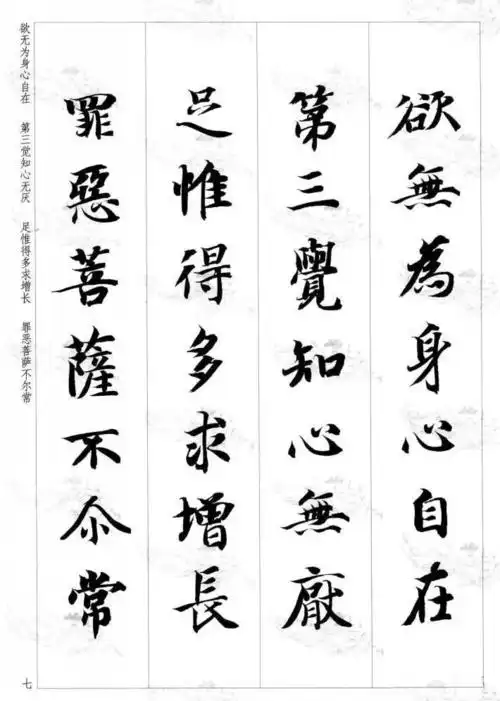 欲無為身心自在
第三覺知心無厭
足惟得多求增長
罪惡菩薩不尒常
欲无为身心自在 第三觉知心无厌 足惟得多求增长 罪恶菩萨不尔常
七